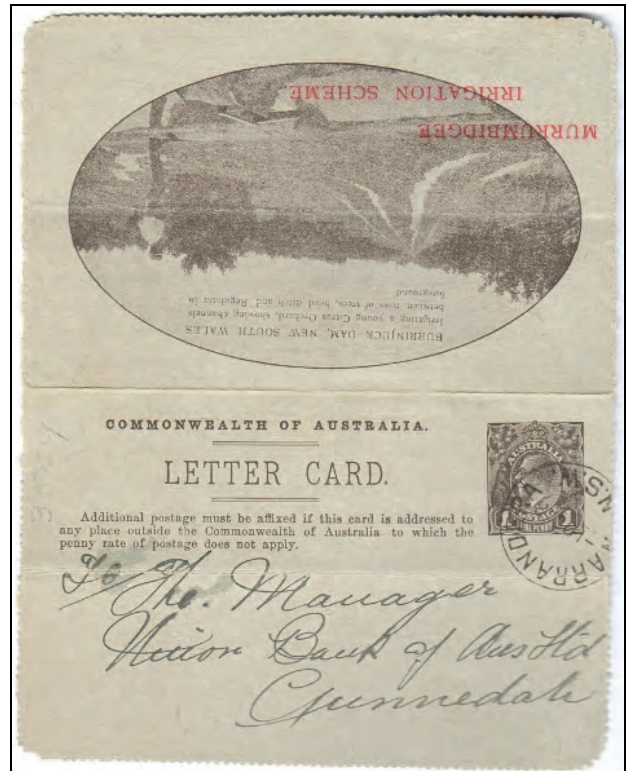 MURRUMBIDGEE
IRRIGATION SCHEME
BURRINJUCK DAM, NEW SOUTH WALES
Irrigating a young Citrus Orchard, showing channels
between rows of trees, head ditch and Regulator in
foreground
COMMONWEALTH OF AUSTRALIA.
LETTER CARD.
Additional postage must be affixed if this card is addressed to
any place outside the Commonwealth of Australia to which the
penny rate of postage does not apply.
AUSTRALIA
1 POSTAGE 1
ONE PENNY
NARRANDERA N.S.W
To The Manager
Union Bank of Aus Ltd
Gunnedah